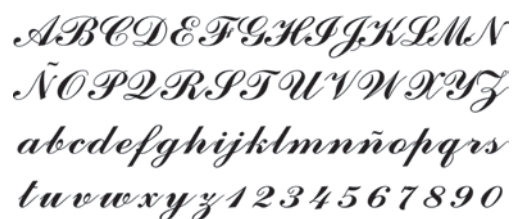 ABCDEFGHIJKLMN
ÑOPQRSTUVWXYZ
abcdefghijklmnñopqrs
tuvwxyz1234567890